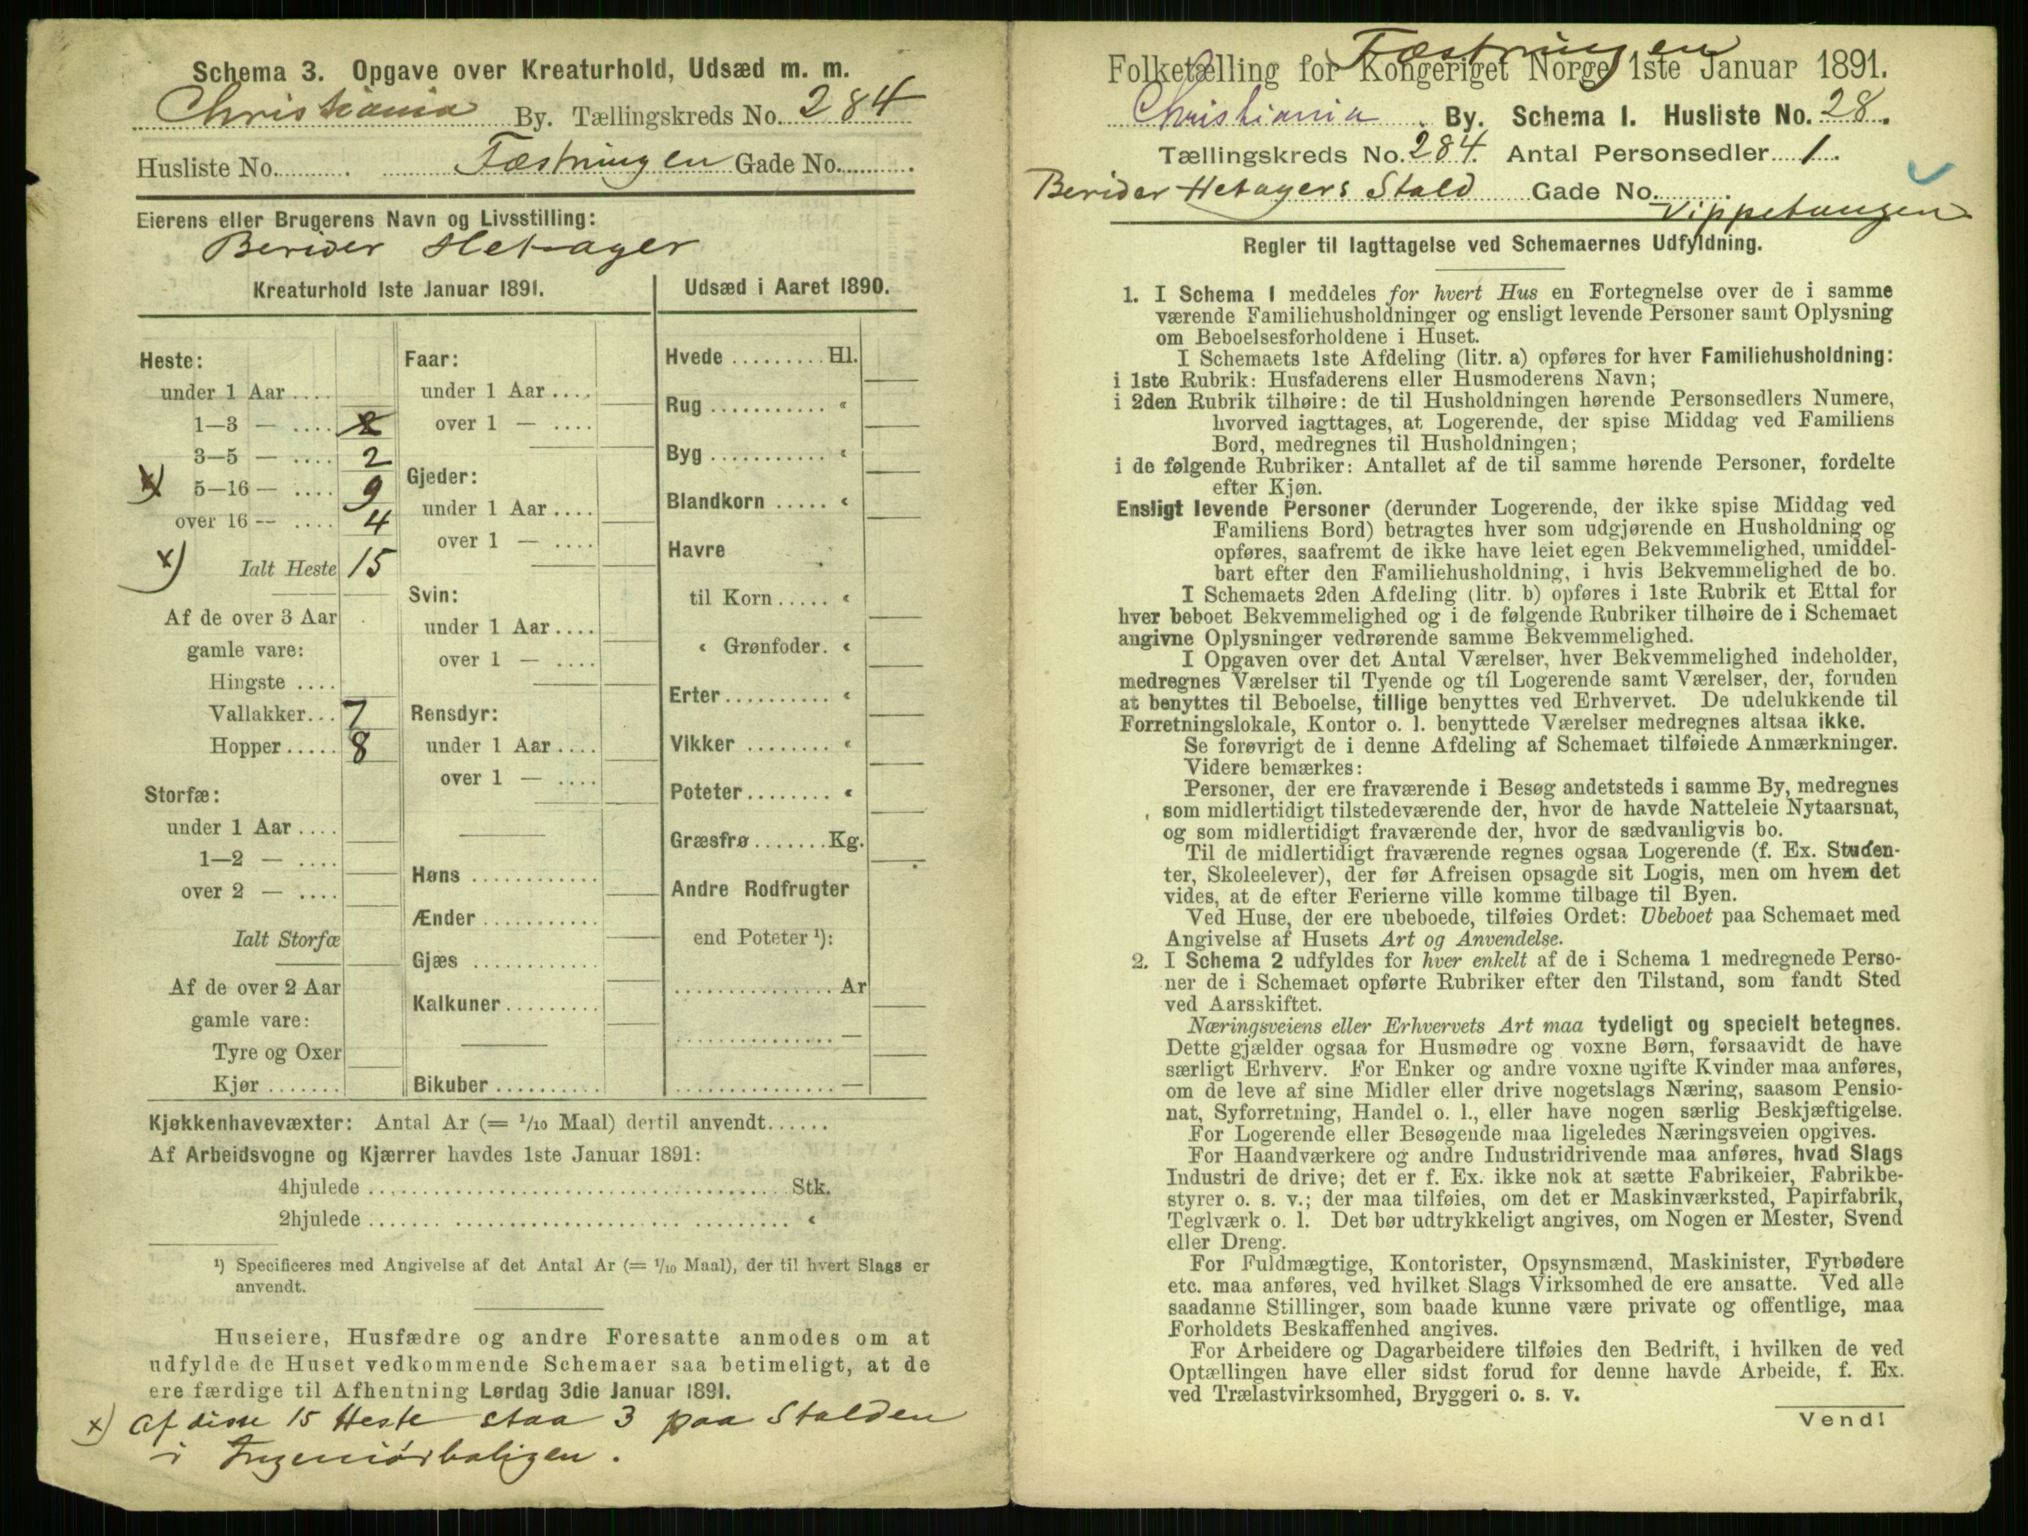 Schema 3. Opgave over Kreaturhold, Udsæd m. m.
Christiania By. Tællingskreds No. 284
Husliste No. Fæstningen Gade No.
Eierens eller Brugerens Navn og Livsstilling:
Berider Hetager
Kreaturhold 1ste Januar 1891.
Heste:
under 1 Aar
1—3 —
3—5 — 2
x) 5—16 — 9
over 16 — 4
x) Ialt Heste 15
Af de over 3 Aar
gamle vare:
Hingste
Vallakker 7
Hopper 8
Storfæ:
under 1 Aar
1—2 —
over 2 —
Ialt Storfæ
Af de over 2 Aar
gamle vare:
Tyre og Oxer
Kjør
Faar:
under 1 Aar
over 1 —
Gjeder:
under 1 Aar
over 1 —
Svin:
under 1 Aar
over 1 —
Rensdyr:
under 1 Aar
over 1 —
Høns
Ænder
Gjæs
Kalkuner
Bikuber
Udsæd i Aaret 1890.
Hvede Hl.
Rug «
Byg «
Blandkorn «
Havre
til Korn «
« Grønfoder. «
Erter «
Vikker «
Poteter «
Græsfrø Kg.
Andre Rodfrugter
end Poteter ¹):
Ar
—
—
Kjøkkenhavevæxter: Antal Ar (= 1/10 Maal) dertil anvendt
Af Arbeidsvogne og Kjærrer havdes 1ste Januar 1891:
4hjulede Stk.
2hjulede «
¹) Specificeres med Angivelse af det Antal Ar (= 1/10 Maal), der til hvert Slags er
anvendt.
Huseiere, Husfædre og andre Foresatte anmodes om at
udfylde de Huset vedkommende Schemaer saa betimeligt, at de
ere færdige til Afhentning Lørdag 3die Januar 1891.
x) Af disse 15 Heste staa 3 paa Stalden
i Ingeniørboligen.
Fæstningen
Folketælling for Kongeriget Norge 1ste Januar 1891.
Christiania By. Schema 1. Husliste No. 28.
Tællingskreds No. 284. Antal Personsedler 1.
Berider Hetagers Stald Gade No.
Vippetangen
Regler til Iagttagelse ved Schemaernes Udfyldning.
1. I Schema 1 meddeles for hvert Hus en Fortegnelse over de i samme
værende Familiehusholdninger og ensligt levende Personer samt Oplysning
om Beboelsesforholdene i Huset.
I Schemaets 1ste Afdeling (litr. a) opføres for hver Familiehusholdning:
i 1ste Rubrik: Husfaderens eller Husmoderens Navn;
i 2den Rubrik tilhøire: de til Husholdningen hørende Personsedlers Numere,
hvorved iagttages, at Logerende, der spise Middag ved Familiens
Bord, medregnes til Husholdningen;
i de følgende Rubriker: Antallet af de til samme hørende Personer, fordelte
efter Kjøn.
Ensligt levende Personer (derunder Logerende, der ikke spise Middag ved
Familiens Bord) betragtes hver som udgjørende en Husholdning og
opføres, saafremt de ikke have leiet egen Bekvemmelighed, umiddel-
bart efter den Familiehusholdning, i hvis Bekvemmelighed de bo.
I Schemaets 2den Afdeling (litr. b) opføres i 1ste Rubrik et Ettal for
hver beboet Bekvemmelighed og i de følgende Rubriker tilhøire de i Schemaet
angivne Oplysninger vedrørende samme Bekvemmelighed.
I Opgaven over det Antal Værelser, hver Bekvemmelighed indeholder,
medregnes Værelser til Tyende og til Logerende samt Værelser, der, foruden
at benyttes til Beboelse, tillige benyttes ved Erhvervet. De udelukkende til
Forretningslokale, Kontor o. l. benyttede Værelser medregnes altsaa ikke.
Se forøvrigt de i denne Afdeling af Schemaet tilføiede Anmærkninger.
Videre bemærkes:
Personer, der ere fraværende i Besøg andetsteds i samme By, medregnes
som midlertidigt tilstedeværende der, hvor de havde Natteleie Nytaarsnat,
og som midlertidigt fraværende der, hvor de sædvanligvis bo.
Til de midlertidigt fraværende regnes ogsaa Logerende (f. Ex. Studen-
ter, Skoleelever), der før Afreisen opsagde sit Logis, men om hvem det
vides, at de efter Ferierne ville komme tilbage til Byen.
Ved Huse, der ere ubeboede, tilføies Ordet: Ubeboet paa Schemaet med
Angivelse af Husets Art og Anvendelse.
2. I Schema 2 udfyldes for hver enkelt af de i Schema 1 medregnede Perso-
ner de i Schemaet opførte Rubriker efter den Tilstand, som fandt Sted
ved Aarsskiftet.
Næringsveiens eller Erhvervets Art maa tydeligt og specielt betegnes.
Dette gjælder ogsaa for Husmødre og voxne Børn, forsaavidt de have
særligt Erhverv. For Enker og andre voxne ugifte Kvinder maa anføres,
om de leve af sine Midler eller drive nogetslags Næring, saasom Pensio-
nat, Syforretning, Handel o. l., eller have nogen særlig Beskjæftigelse.
For Logerende eller Besøgende maa ligeledes Næringsveien opgives.
For Haandværkere og andre Industridrivende maa anføres, hvad Slags
Industri de drive; det er f. Ex. ikke nok at sætte Fabrikeier, Fabrikbe-
styrer o. s. v.; der maa tilføies, om det er Maskinværksted, Papirfabrik,
Teglværk o. l. Det bør udtrykkeligt angives, om Nogen er Mester, Svend
eller Dreng.
For Fuldmægtige, Kontorister, Opsynsmænd, Maskinister, Fyrbødere
etc. maa anføres, ved hvilket Slags Virksomhed de ere ansatte. Ved alle
saadanne Stillinger, som baade kunne være private og offentlige, maa
Forholdets Beskaffenhed angives.
For Arbeidere og Dagarbeidere tilføies den Bedrift, i hvilken de ved
Optællingen have eller sidst forud for denne havde Arbeide, f. Ex.
ved Trælastvirksomhed, Bryggeri o. s. v.
Vend!